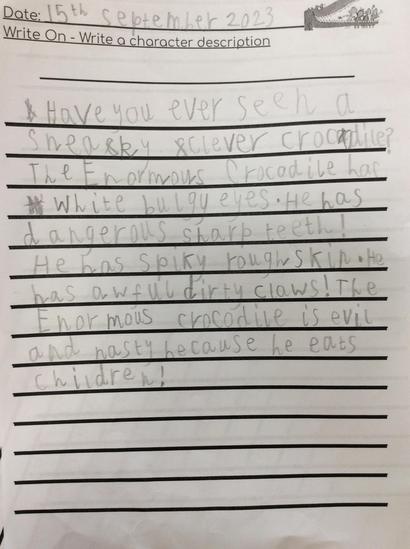 Date: 15th september 2023
Write On - Write a character description
Have you ever seen a
sneaky &clever crocodile?
The Enormous Crocodile has
white bulgy eyes. He has
dangerous sharp teeth!
He has spiky rough skin. He
has awful dirty claws! The
Enormous crocodile is evil
and nasty because he eats
children!